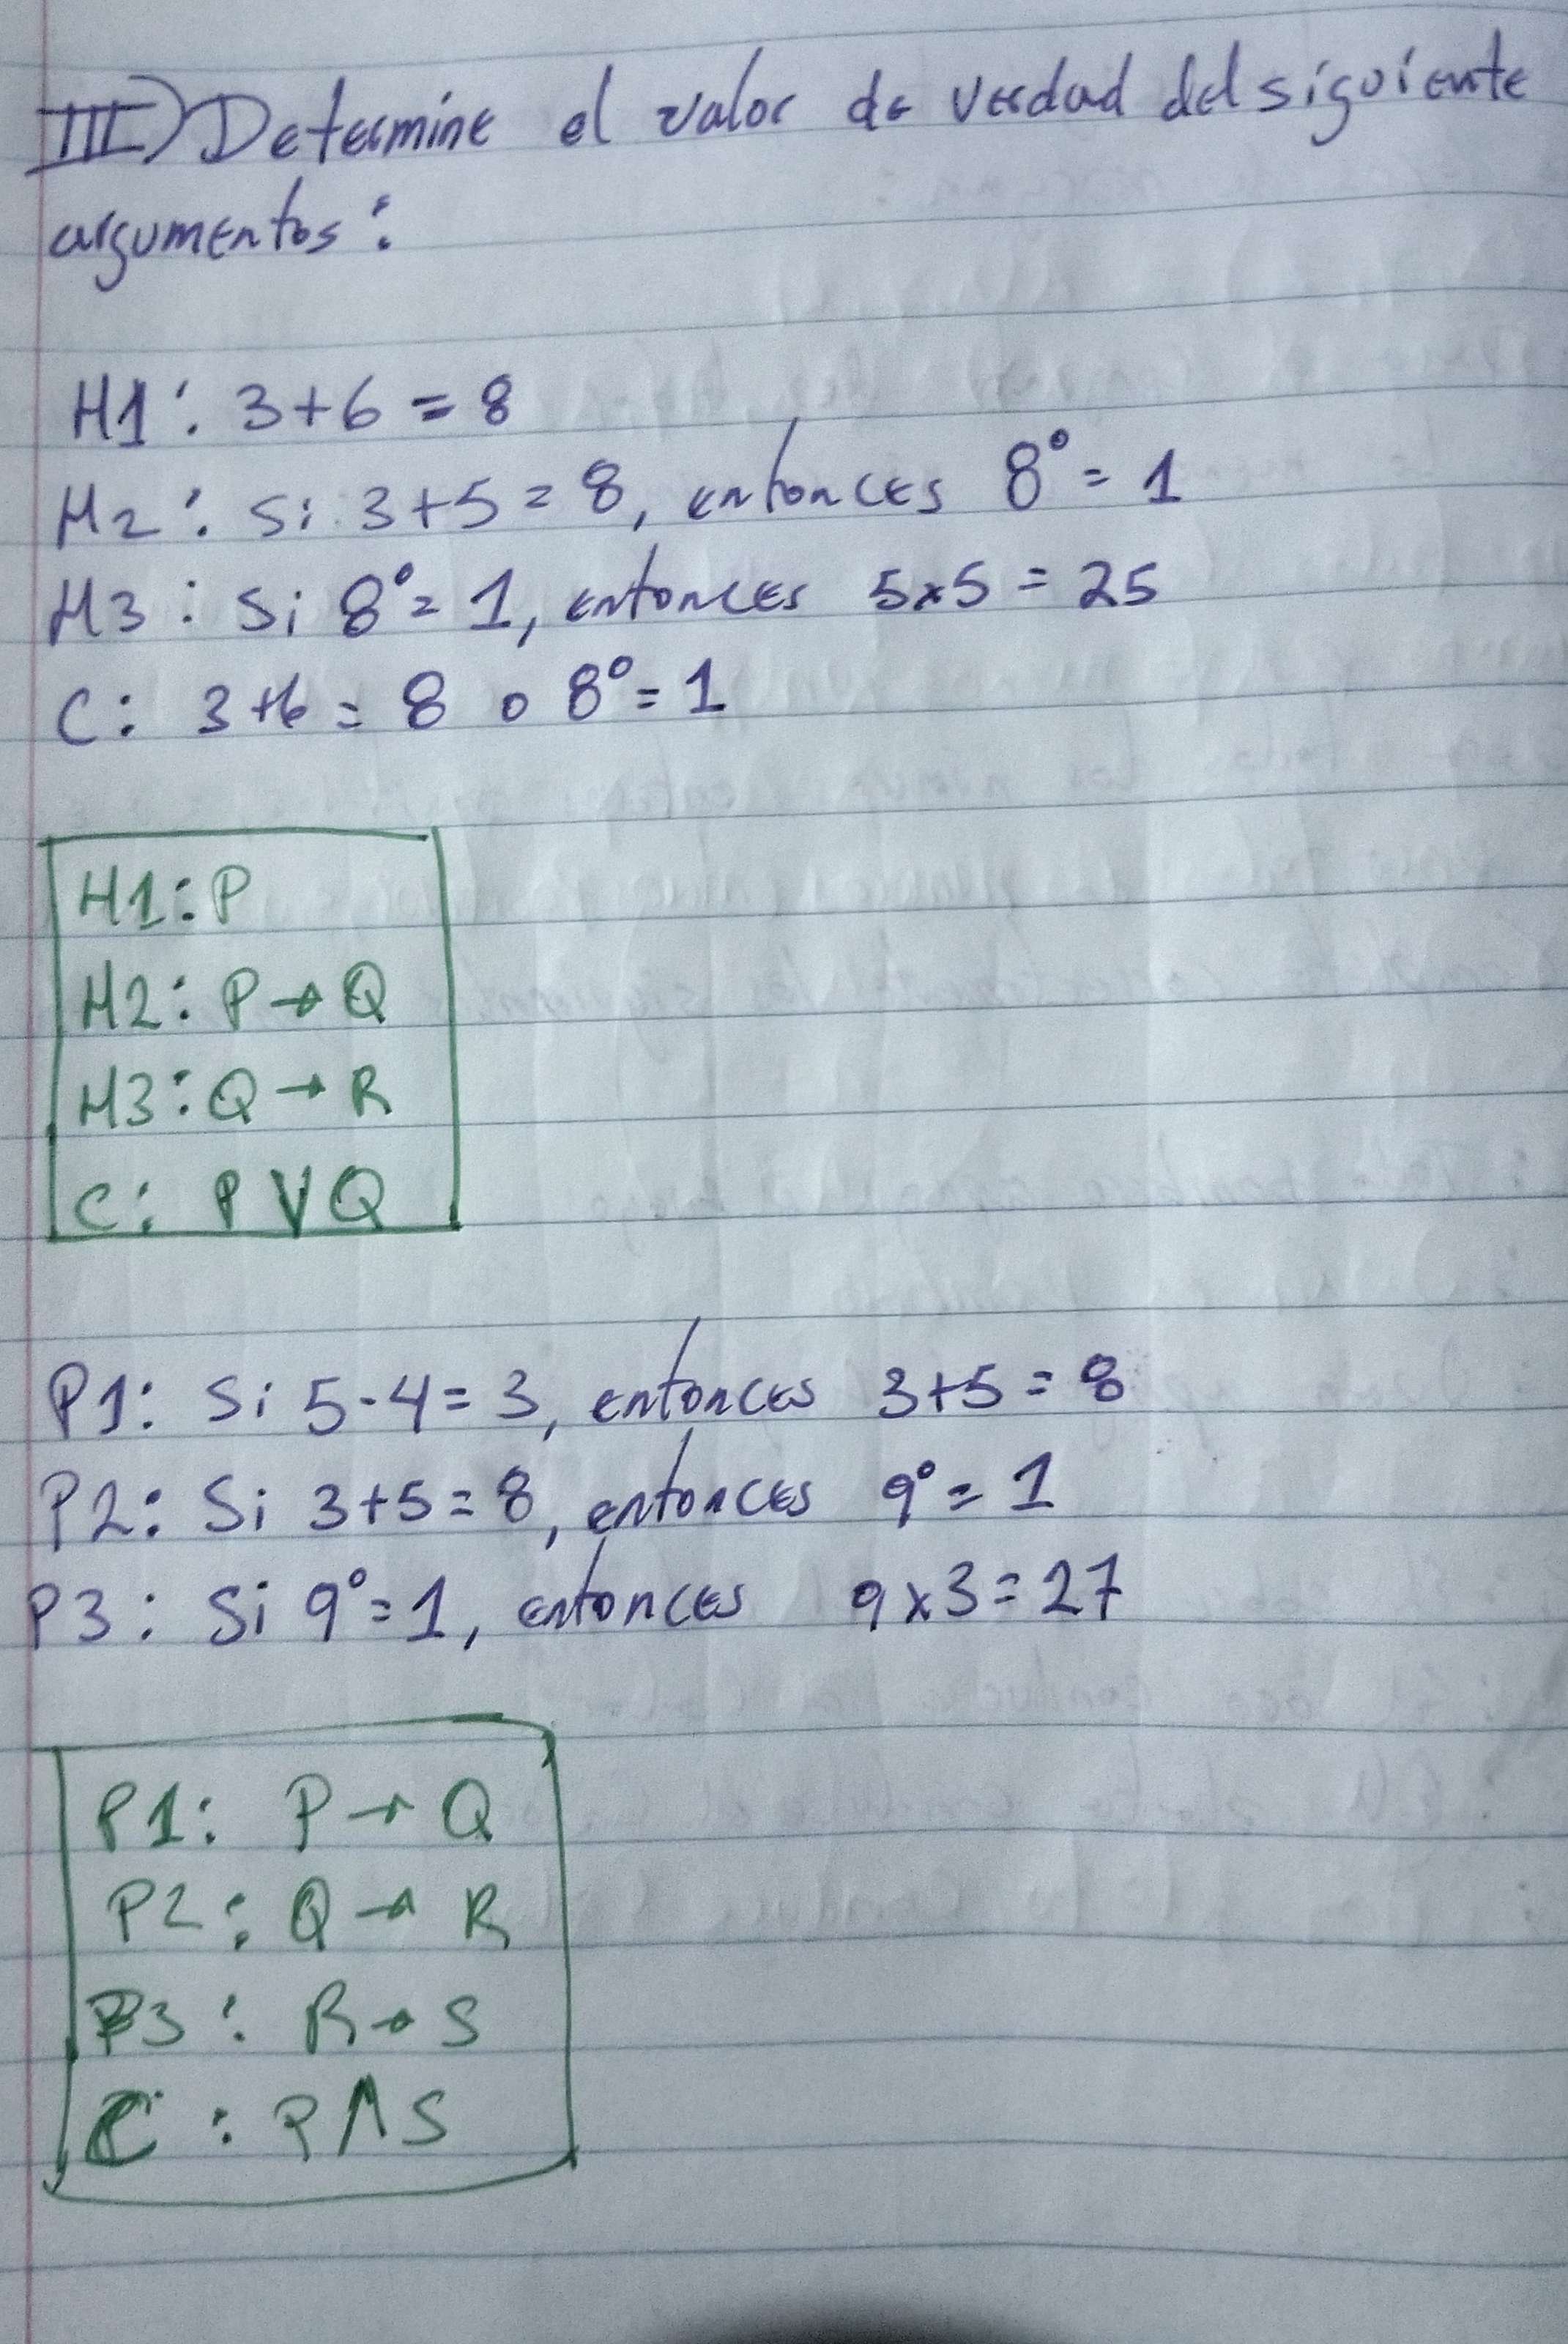 III) Determine el valor de verdad del siguiente
argumentos:
H1: 3+6 = 8
H2: Si 3+5 = 8, entonces 8° = 1
H3: Si 8° = 1, entonces 5x5 = 25
C: 3+6 = 8 o 8° = 1
H1: P
H2: P → Q
H3: Q → R
C: P V Q
P1: Si 5-4 = 3, entonces 3+5 = 8
P2: Si 3+5 = 8, entonces 9° = 1
P3: Si 9° = 1, entonces 9x3 = 27
P1: P → Q
P2: Q → R
P3: R → S
C: P Λ S